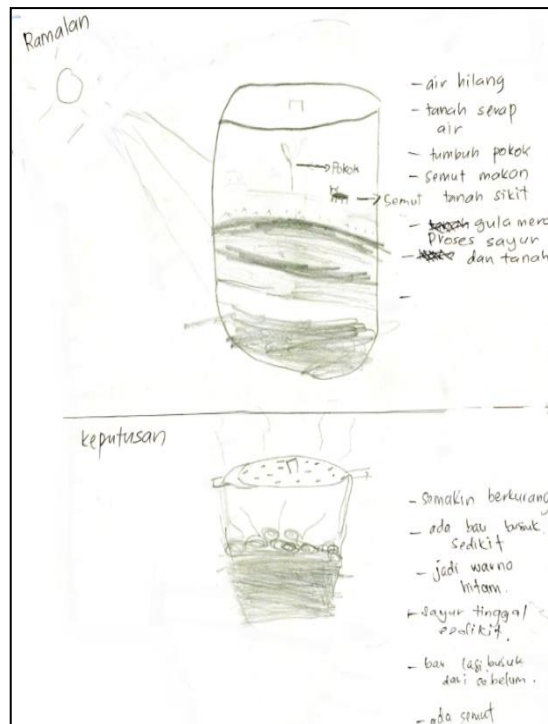 Ramalan
- air hilang
- tanah serap
air
- tumbuh pokok
Pokok
- semut makan
Semut
tanah sikit
- gula mera
Proses sayur
- dan tanah
-
keputusan
- semakin berkurang
- ada bau busuk
sedikit
- jadi warna
hitam.
- sayur tinggal
sedikit.
- bau lagi busuk
dari sebelum.
- ada semut